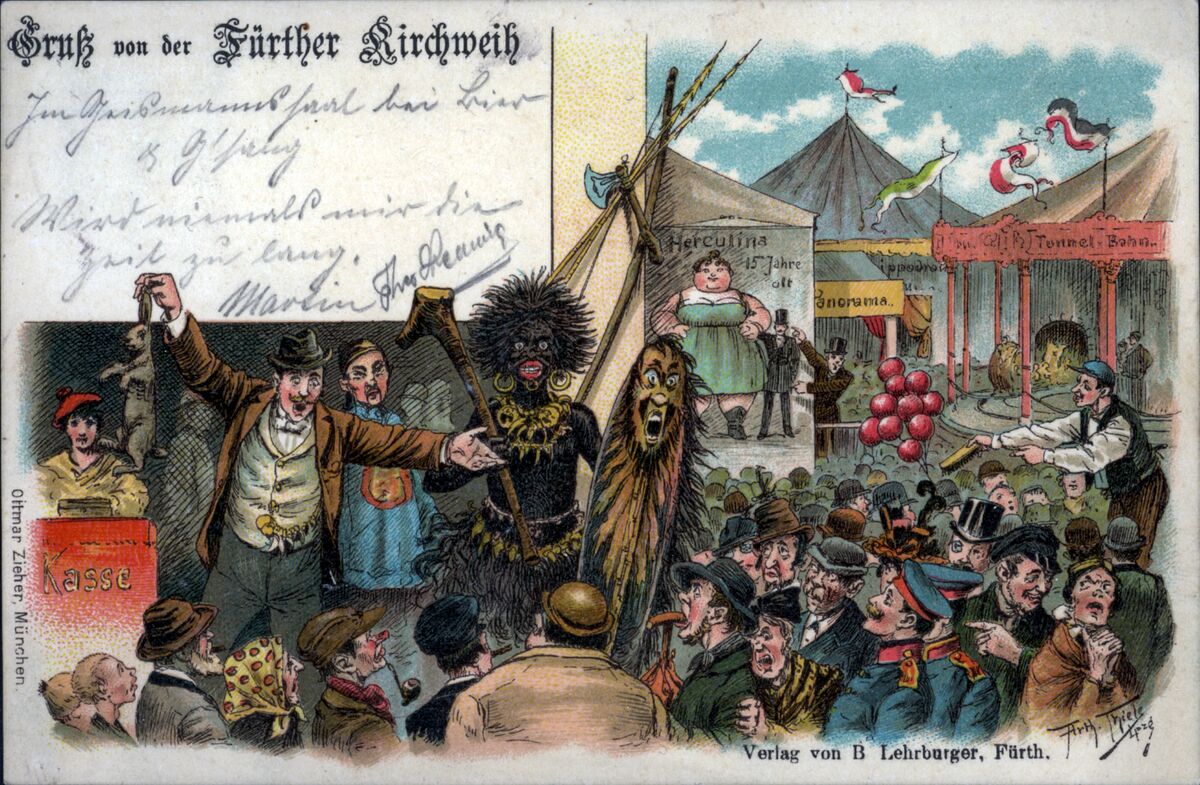 Gruß von der Fürther Kirchweih
Im Geismannssaal bei Bier
& G'sang
Wird niemals mir die
Zeit zu lang.
Martin
Herculina
15 Jahre
alt
Panorama.
Tunnel-Bahn.
Kasse
Ottmar Zieher, München.
Arth. Thiele
Lpzg
Verlag von B Lehrburger, Fürth.